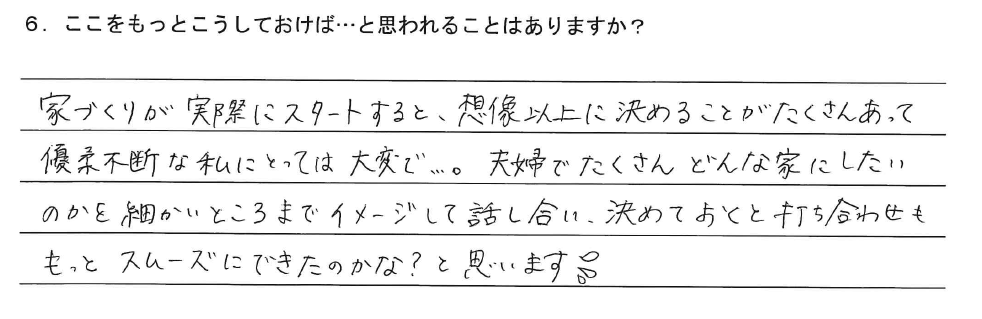 6．ここをもっとこうしておけば…と思われることはありますか？
家づくりが実際にスタートすると、想像以上に決めることがたくさんあって
優柔不断な私にとっては大変で…。夫婦でたくさんどんな家にしたい
のかを細かいところまでイメージして話し合い、決めておくと打ち合わせも
もっとスムーズにできたのかな？と思います